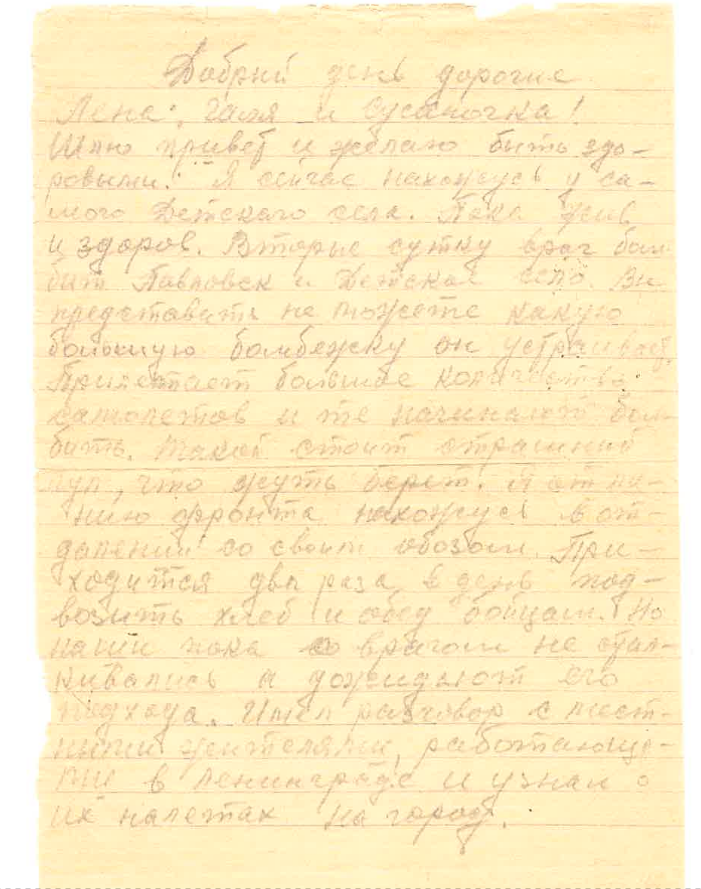 Добрый день дорогие
Лена, Галя и Сусаночка!
Шлю привет и желаю быть здо-
ровыми. Я сейчас нахожусь у са-
мого Детского села. Пока жив
и здоров. Вторые сутки враг бом-
бит Павловск и Детское село. Вы
представить не можете какую
большую бомбежку он устраивает.
Прилетает большое количество
самолетов и те начинают бом-
бить. Такой стоит страшный
гул, что жуть берет. Я от ли-
нию фронта нахожусь в от-
далении со своим обозом. При-
ходится два раза в день под-
возить хлеб и обед бойцам. Но
наши пока со врагом не стал-
кивались а дожидают его
подхода. Имел разговор с мест-
ными жителями, работающе-
ми в Ленинграде и узнал о
их налетах на город.